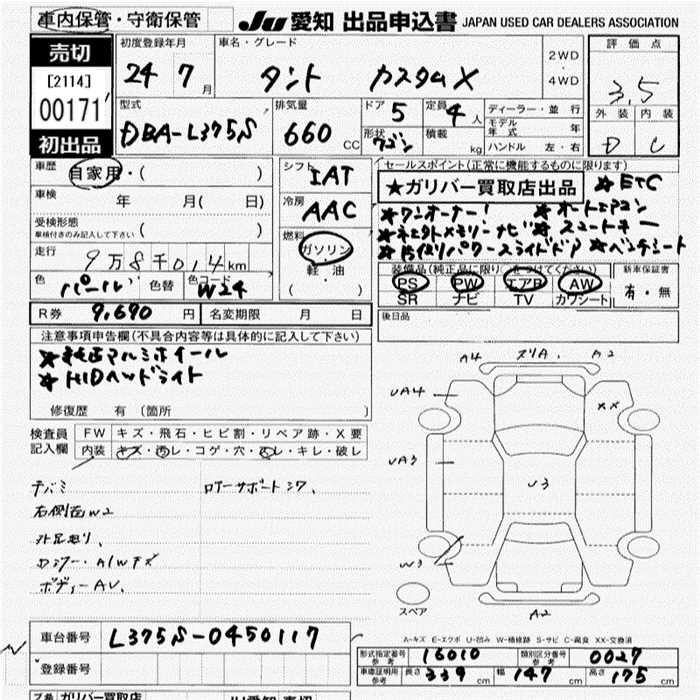 車内保管・守衛保管
JU 愛知 出品申込書 JAPAN USED CAR DEALERS ASSOCIATION
売切
[2114]
00171
初出品
初度登録年月
24 7 月
車名・グレード
タント カスタムX
2WD
4WD
評価点
3.5
外装 内装
D C
型式
DBA-L375S
排気量
660 CC
ドア 5
形状 ワゴン
定員 4 人
積載 kg
ディーラー・並行
モデル年式 年
ハンドル 左・右
車歴 自家用・( )
車検 年 月( 日)
受検形態
車検付きのみ記入して下さい ( )
走行
9万8千014km
色 パール 色替 色コード W24
シフト IAT
冷房 AAC
燃料
ガソリン
軽油
( ・ )
セールスポイント(正常に機能するものに限ります)
★ガリバー買取店出品 ★ETC
★ワンオーナー! ★オートエアコン
★ネクストメモリーナビ ★スマートキー
★片側パワースライドドア ★ベンチシート
装備品(純正品に限り○をつけてください)
PS PW エアB AW
SR ナビ TV カワシート
新車保証書
有・無
R券 9,690 円 名変期限 月 日
後日品
注意事項申告欄(不具合内容等は具体的に記入して下さい)
★純正アルミホイール
★HIDヘッドライト
修復歴 有 (箇所 )
検査員記入欄
FW キズ・飛石・ヒビ割・リペア跡・X要
内装 キズ・汚レ・コゲ・穴・スレ・キレ・破レ
右側面W2
ボディーAV.
A4 スリA. A2
UA4
XX
UA3
U3
W3
スペア
A2
車台番号 L375S-0450117
登録番号
A-キズ E-エクボ U-凹み W-補修跡 S-サビ C-腐食 XX-交換済
型式指定番号 参考 16010 類別区分番号 参考 0027
車庫証明用 参考 長さ 339 cm 幅 147 cm 高さ 175 cm
ガリバー買取店
JU愛知 売切